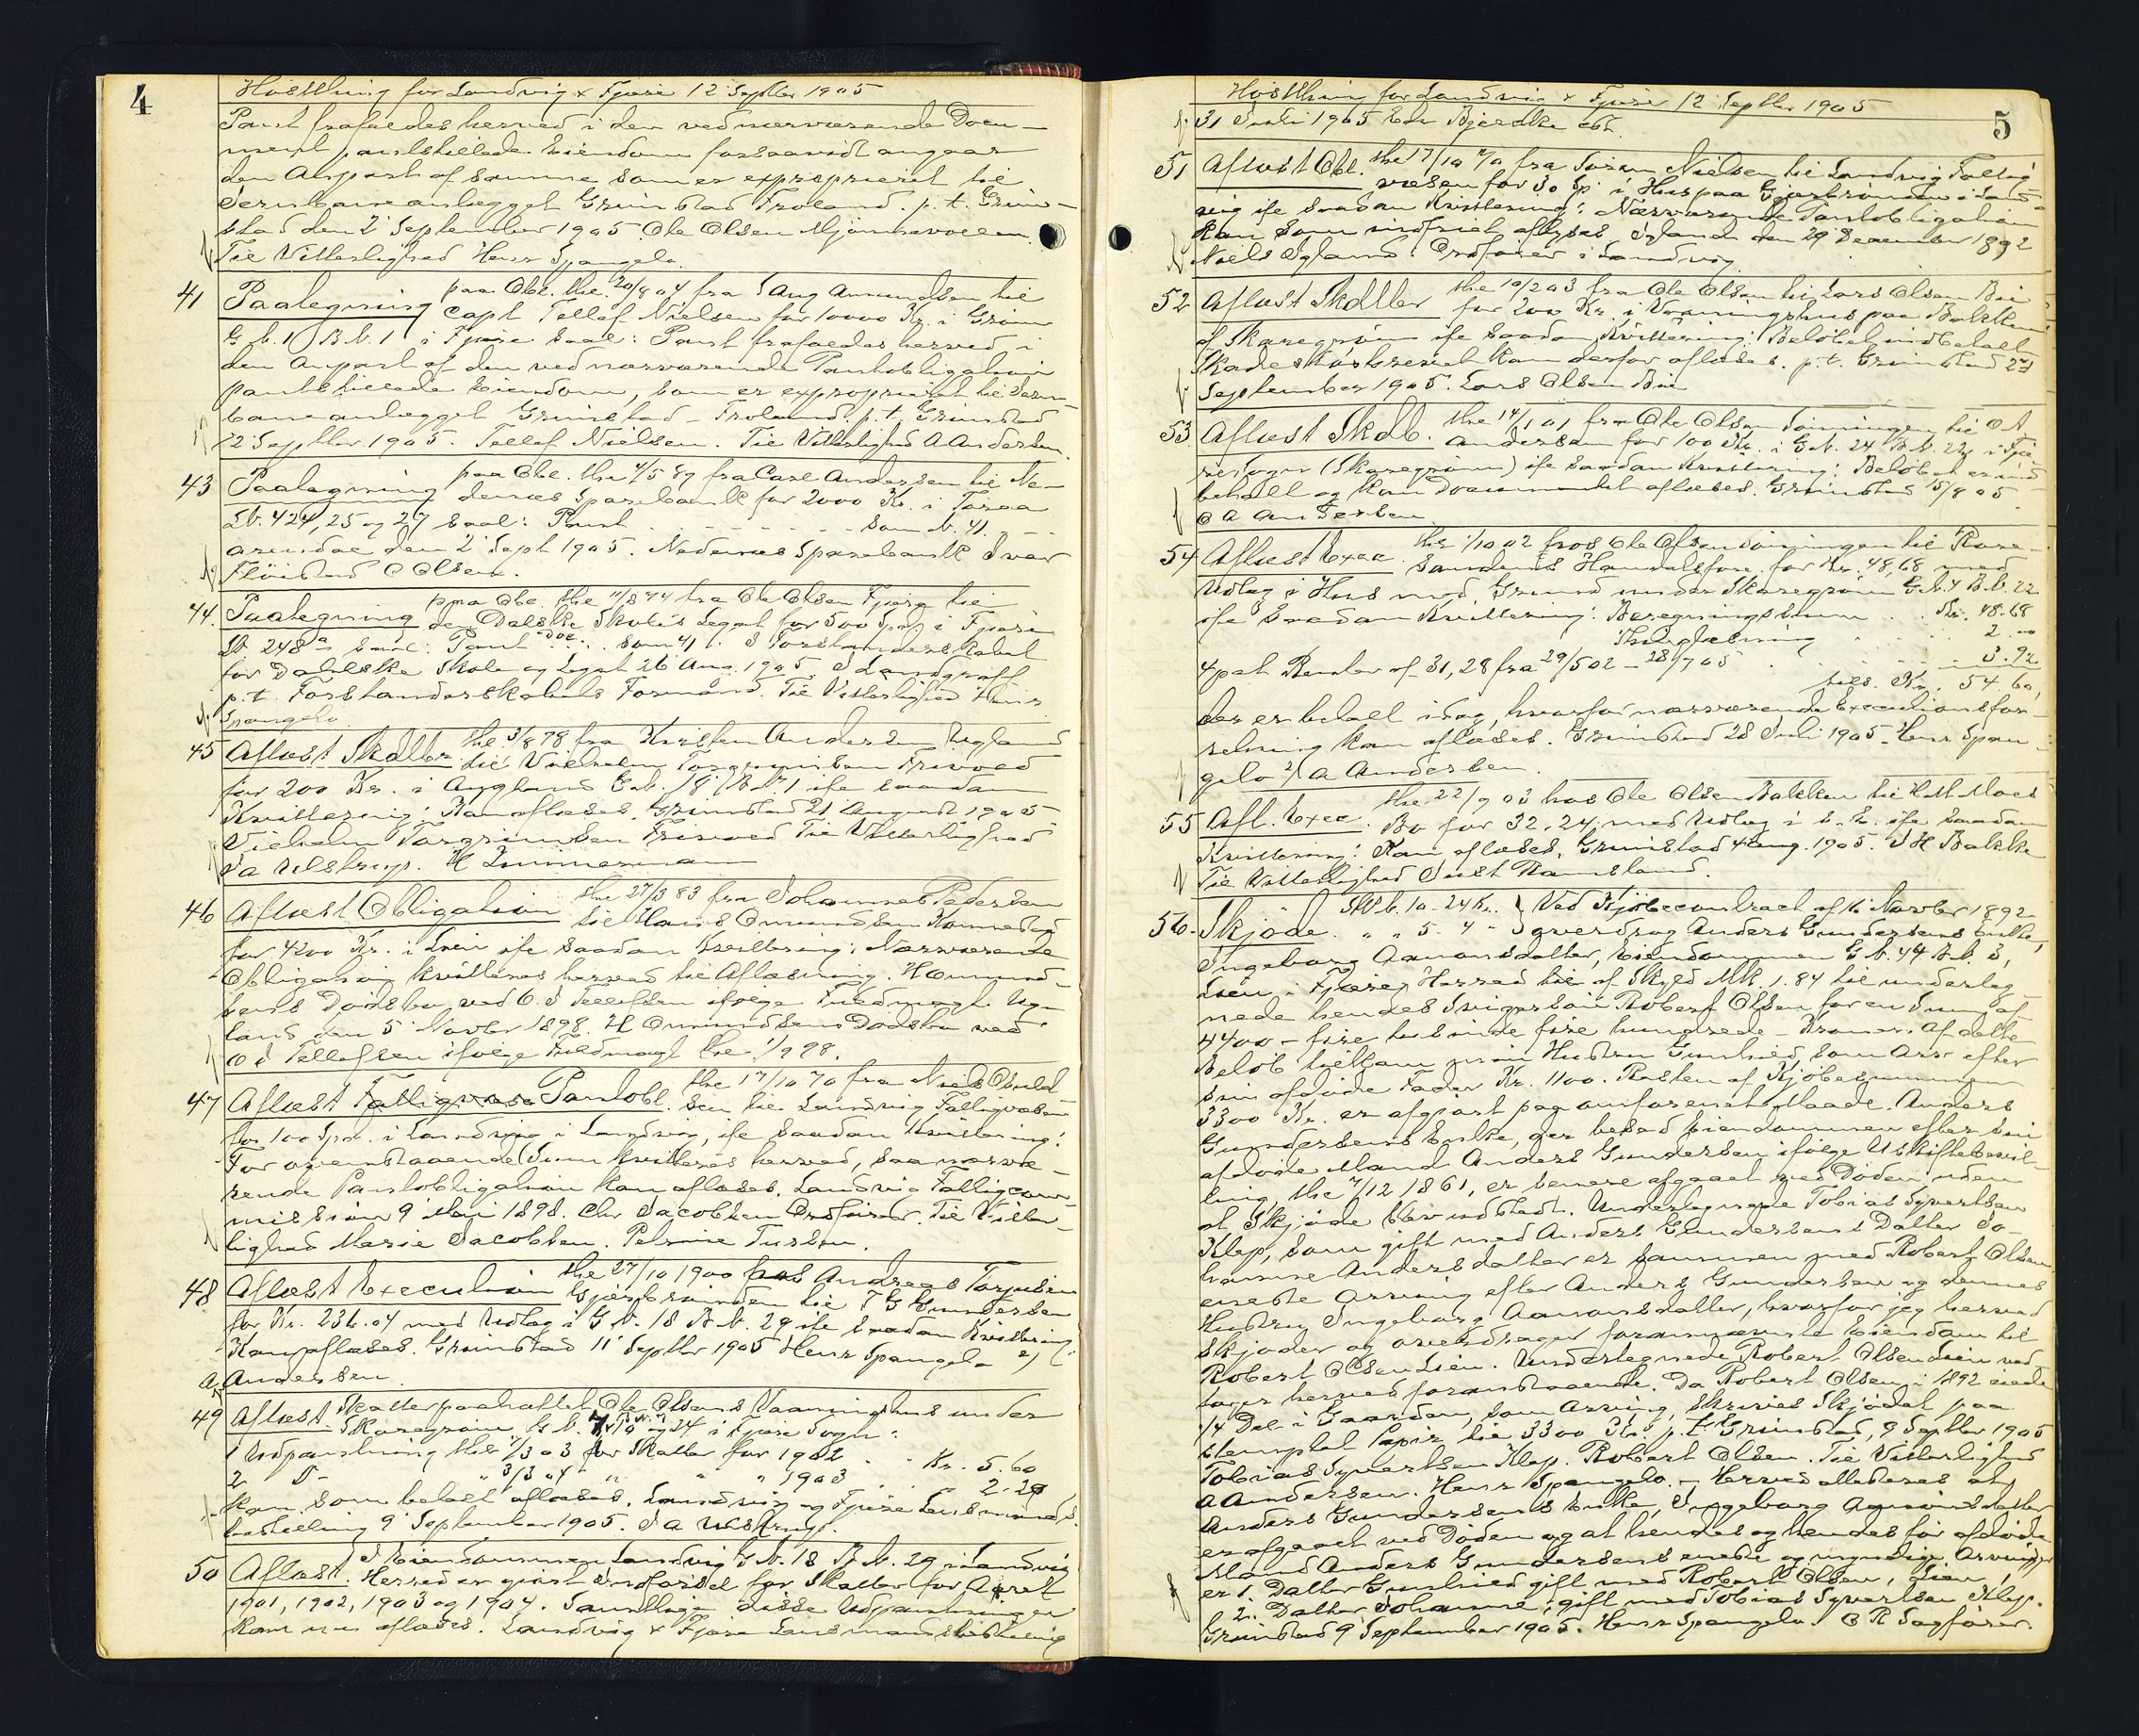 4
Høstthing for Landvig & Fjære 12 Septbr 1905
Pant frafaldes herved i den ved nærværende Docu-
ment pantstillede Eiendom forsaavidt angaar
den Anpart af samme som er exproprieret til
Jernbaneanlægget Grimstad Froland. p. t. Grim-
stad den 2 September 1905 Ole Olsen
Til Vitterlighed Henr Spangelo.
41 Paategning paa Obl. thl. 20/8 04 fra J Aug Amundsen til
Capt Tellef Nielsen for 10000 Kr. i Grøm
G. N. 1 B. N. 1 i Fjære saal: Pant frafaldes herved i
den Anpart af den ved nærværende Pantobligation
pantstillede Eiendom, som er exproprieret til Jern-
baneanlægget Grimstad - Froland. p. t. Grimstad
12 Septbr 1905. Tellef Nielsen. Til Vitterlighed A Andersen.
43 Paategning paa Obl. thl. 4/5 89 fra Carl Andersen til Ne-
denæs Sparebank for 2000 Kr. i
Lb. 424, 25 og 27 saal: Pant . . . . . . som N. 41. -
Arendal den 2 Sept 1905. Nedenæs Sparebank Ivar
Fløistad O Olsen.
44. Paategning paa Obl. thl. 11/8 74 fra Ole Olsen Fjære til
den Dalske Skoles Legat for 500 Spd. i Fjære
Lb 248 a saal: Pant Doc. . . som 41. Forstanderskabet
for Dahlske Skole og Legat 26 Aug. 1905 J Landgraff
p. t. Forstanderskabets Formand. Til Vitterlighed Henr
Spangelo.
45 Aflæst Skdbr. thl. 3/8 78 fra Kristen Andersen Ugland
til Vilhelm Torgrimsen Frivold
for 200 Kr. i Aygland G. N. 18 B. N. 1 ifl saadan
Kvittering: Kan aflæses. Grimstad 21 August 1905
Vilhelm Torgrimsen Frivold Til Vitterlighed
J a Ulstrup. H Zimmermann
46 Aflæst Obligation thl 27/3 83 fra Johannes Pedersen
til Hans Omundsen
for 4200 Kr. i Lien ifl saadan Kvittering: Nærværende
Obligation kvitteres herved til Aflæsning. H Omund-
sens Dødsbo ved O. J Tellefsen ifølge Fuldmagt. Ug-
land den 5 Novbr 1898. H Omundsens Dødsbo ved
O J Tellefsen ifølge Fuldmagt thl 1/9 98.
47 Aflæst Fattigvæs Pantobl. thl 17/10 70 fra Niels
sen til Landvig Fattigvæsen
for 100 Spd. i Landvig i Landvig, ifl saadan Kvittering:
For ovenstaaende Sum kvitteres herved, saa nærvæ-
rende Pantobligation kan aflæses. Landvig Fattigcom-
mission 9 Mai 1898. Chr Jacobsen Ordfører. Til Vitter-
lighed Marie Jacobsen. Petrine
48 Aflæst Execution thl 27/10 1900 hos Andreas Torjusen
Gjersbrønden til T G Gundersen
for Kr. 236.04 med Udlæg i G. N. 18 B. N. 29 ifl saadan Kvittering:
Kan aflæses. Grimstad 11 Septbr 1905 Henr Spangelo
A Andersen.
49 Aflæst Skatter paahæftet Ole Olsens Vaaningshus under
Skaregrøm G. N. 7 B. N. 9 og 24 i Fjære Sogn:
1 Udpantning thl 1/3 03 for Skatter for 1902 . . Kr. 5.60
2 D- " 3/3 04 " " " 1903 . . . 2.29
kan som betalt aflæses. Landvig og Fjære Lensmands-
bestilling 9 September 1905. J a Ulstrup.
50 Aflæst. I Eiendommen Landvig G. N. 18 B. N. 29 i Landvig
Herred er gjort Indførsel for Skatter for Aaret
1901, 1902, 1903 og 1904. Samtlige disse Udpantninger
kan nu aflæses. Landvig & Fjære Lensmandsbestilling
5
Høstthing for Landvig & Fjære 12 Septbr 1905
31 Juli 1905 Edv Bjelke cst.
51 Aflæst Obl. thl 17/10 70 fra Søren Nielsen til Landvig Fattig-
væsen for 30 Sp. i Hus paa Gjersbrønden i Land-
vig ifl saadan Kvittering: Nærværende Pantobligation
kan som indfriet aflyses Igland den 29 December 1892
Niels Igland Ordfører i Landvig
52 Aflæst Skdbr thl 10/2 03 fra Ole Olsen til Lars Olsen Bie
for 200 Kr. i Vaaningshus paa Bakken
af Skaregrøm ifl saadan Kvittering: Beløbet indbetalt
Skadesløsbrevet kan derfor aflæses. p. t. Grimstad 27
September 1905. Lars Olsen Bie
53 Aflæst Skdb. thl 14/1 01 fra Ole Olsen Dønningen til O A
Andersen for 100 Kr. i G. N. 24 B. N. 22 i Fjæ-
resogn (Skaregrøm) ifl saadan Kvittering: Beløbet er ind-
betalt og kan Documentet aflæses. Grimstad 15/8 05
O A Andersen
54 Aflæst Exec. thl 1/10 02 hos Ole Olsen Dønningen til Rore-
sandens Handelsfore. for Kr. 48,68 med
Udlæg i Hus med Grund under Skaregrøm G. N. 7 B. N. 22
ifl saadan Kvittering: Beregningssum . . Kr. 48.68
Thinglæsning . . . 2.00
4 pct Renter af 31,28 fra 29/5 02 - 28/7 05 . . . 3.92
tils. Kr. 54.60,
der er betalt idag, hvorfor nærværende Executionsfor-
retning kan aflæses. Grimstad 28 Juli 1905. Henr Span-
gelo A Andersen.
55 Afl. Exec. thl 22/9 03 hos Ole Olsen Bakken til H M Moes
Bo for 32,24 med Udlæg i S. E. ifl saadan
Kvittering: Kan aflæses. Grimstad 4 Aug. 1905. J H Bakke
Til Vitterlighed Just Ramsland.
56. Skjøde. Stpl. 10 - 24 Kr. Ved Kjøbecontract af 16 Novbr 1892
" " 5. 4 - overdrog Anders Gundersens Enke,
Ingeborg Aanonsdatter, Eiendommen G. N. 44 B. N. 3,
Lien i Fjære Herred til af Skyld Mk. 1.84 til underteg-
nede hendes Svigersøn Robert Olsen for en Sum af
4400 - fire tusinde fire hundrede - Kroner. Af dette
Beløb tilkom min Hustru Gunhild, som Arv efter
sin afdøde Fader Kr. 1100. Resten af Kjøbesummen
3300 Kr. er afgjort paa omforenet Maade. Anders
Gundersens Enke, der besad Eiendommen efter sin
afdøde Mand Anders Gundersen ifølge Uskiftebevil-
ling, thl 7/12 1861, er senere afgaaet ved Døden uden
at Skjøde blev udstedt. Undertegnede Tobias Syvertsen
Klep, som gift med Anders Gundersens Datter Jo-
hanne Andersdatter er sammen med Robert Olsen
eneste Arving efter Anders Gundersen og dennes
Hustru Ingeborg Aanonsdatter, hvorfor jeg herved
skjøder og overdrager forannævnte Eiendom til
Robert Olsen Lien. Undertegnede Robert Olsen Lien ved-
tager herved foranstaaende. Da Robert Olsen i 1892 eiede
1/4 Del i Gaarden, som Arving, skrives Skjødet paa
stemplet Papir til 3300 Kr. p. t. Grimstad, 9 Septbr 1905
Tobias Syvertsen Klep. Robert Olsen. Til Vitterlighed
A Andersen. Henr Spangelo. - Herved attesteres at
Anders Gundersens Enke, Ingeborg Aanonsdatter
er afgaaet ved Døden og at hendes og hendes før afdøde
Mand Anders Gundersens eneste og myndige Arvinger
er 1. Datter Gunhild gift med Robert Olsen, Lien,
2. Datter Johanne, gift med Tobias Syvertsen Klep.
Grimstad 9 September 1905. Henr Spangelo. O R Sagfører.